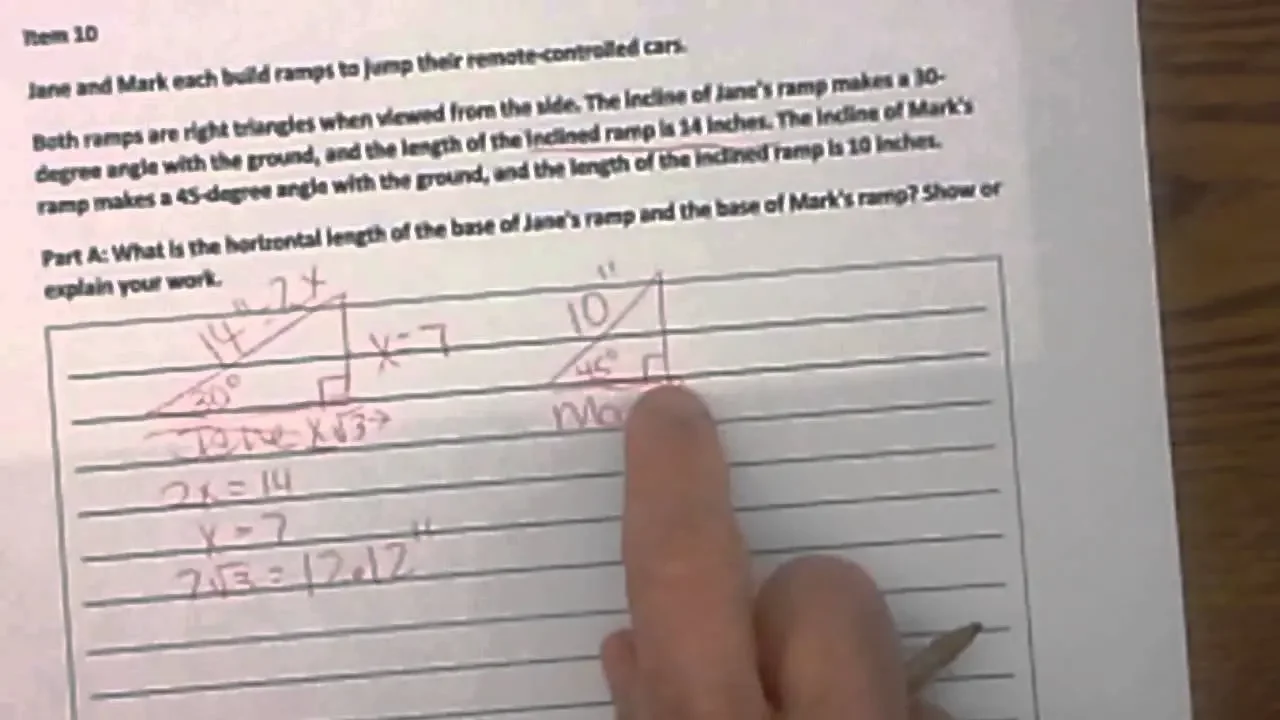 Item 10
Jane and Mark each build ramps to jump their remote-controlled cars.
Both ramps are right triangles when viewed from the side. The incline of Jane's ramp makes a 30-
degree angle with the ground, and the length of the inclined ramp is 14 inches. The incline of Mark's
ramp makes a 45-degree angle with the ground, and the length of the inclined ramp is 10 inches.
Part A: What is the horizontal length of the base of Jane's ramp and the base of Mark's ramp? Show or
explain your work.
14" = 2x
x=7
30°
Jane x√3→
10"
45°
Ma
2x = 14
x = 7
7√3 = 12.12"